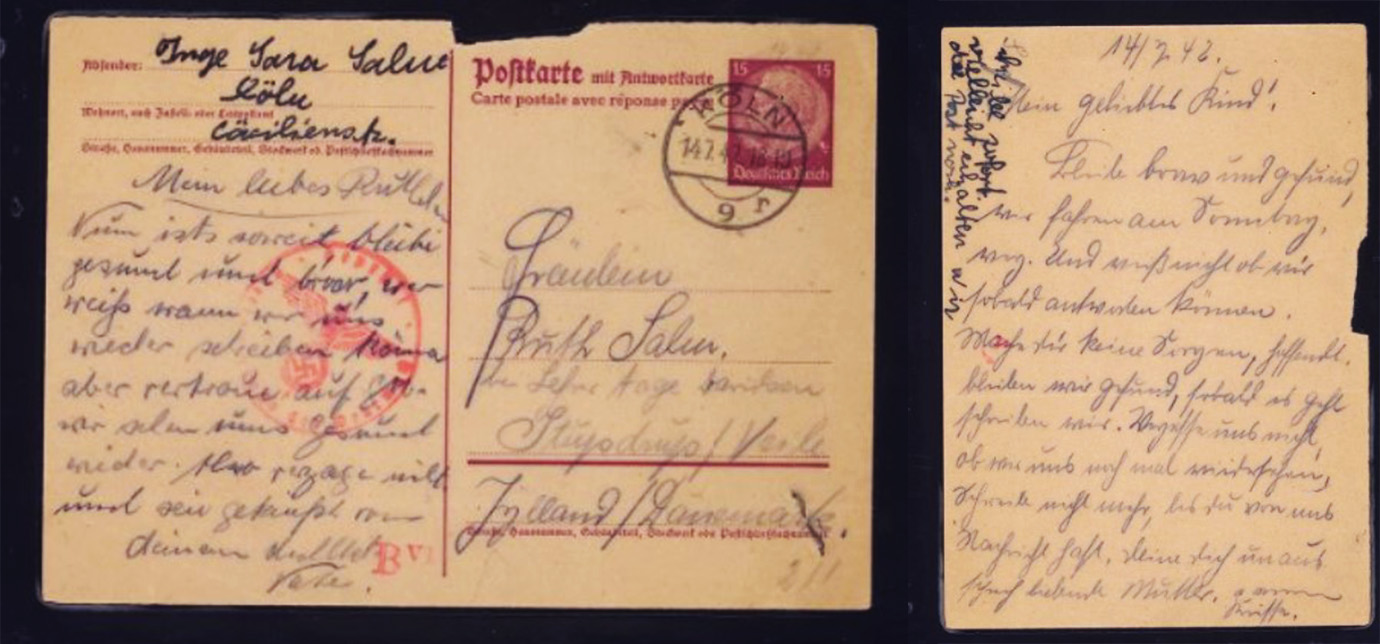 Absender: Inge Sara Salm
Cöln
Wohnort, auch Zustell- oder Leitpostamt
Cäcilienstr.
Straße, Hausnummer, Gebäudeteil, Stockwerk od. Postschließfachnummer
Mein liebes Ruthchen
Nun ists soweit bleibe
gesund und brav, wer
weiß wann wir uns
wieder schreiben könn
aber vertraue auf
wir sehen uns gesund
wieder. Also verzage nicht
und sei geküßt von
deinem
Vater.
Postkarte mit Antwortkarte
Carte postale avec réponse
15 15
Deutsches Reich
KÖLN
14.7.42
9
Fräulein
Ruth Salm.
Lehrer Aage
Vejle
Jylland / Dänemark.
Straße, Hausnummer, Gebäudeteil, Stockwerk oder Postschließfachnummer
B VI
2/1
14/7.42.
Mein geliebtes Kind!
Bleibe brav und gesund,
wir fahren am Sonntag,
weg. Und weiß nicht ob wir
sobald antworten können.
Mache dir keine Sorgen, hoffentl.
bleiben wir gesund, sobald es geht
schreiben wir. Vergesse uns nicht,
ob wir uns noch mal wiedersehen,
Schreibe nicht mehr, bis du von uns
Nachricht hast. Deine dich
liebende Mutter.
Grüsse.
sofort.
vielleicht erhalten wir
die Post noch.